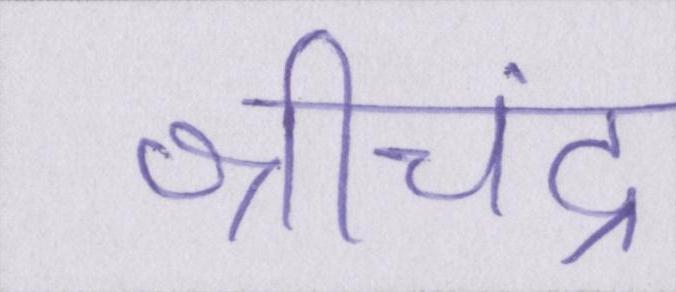 श्रीचंद्र